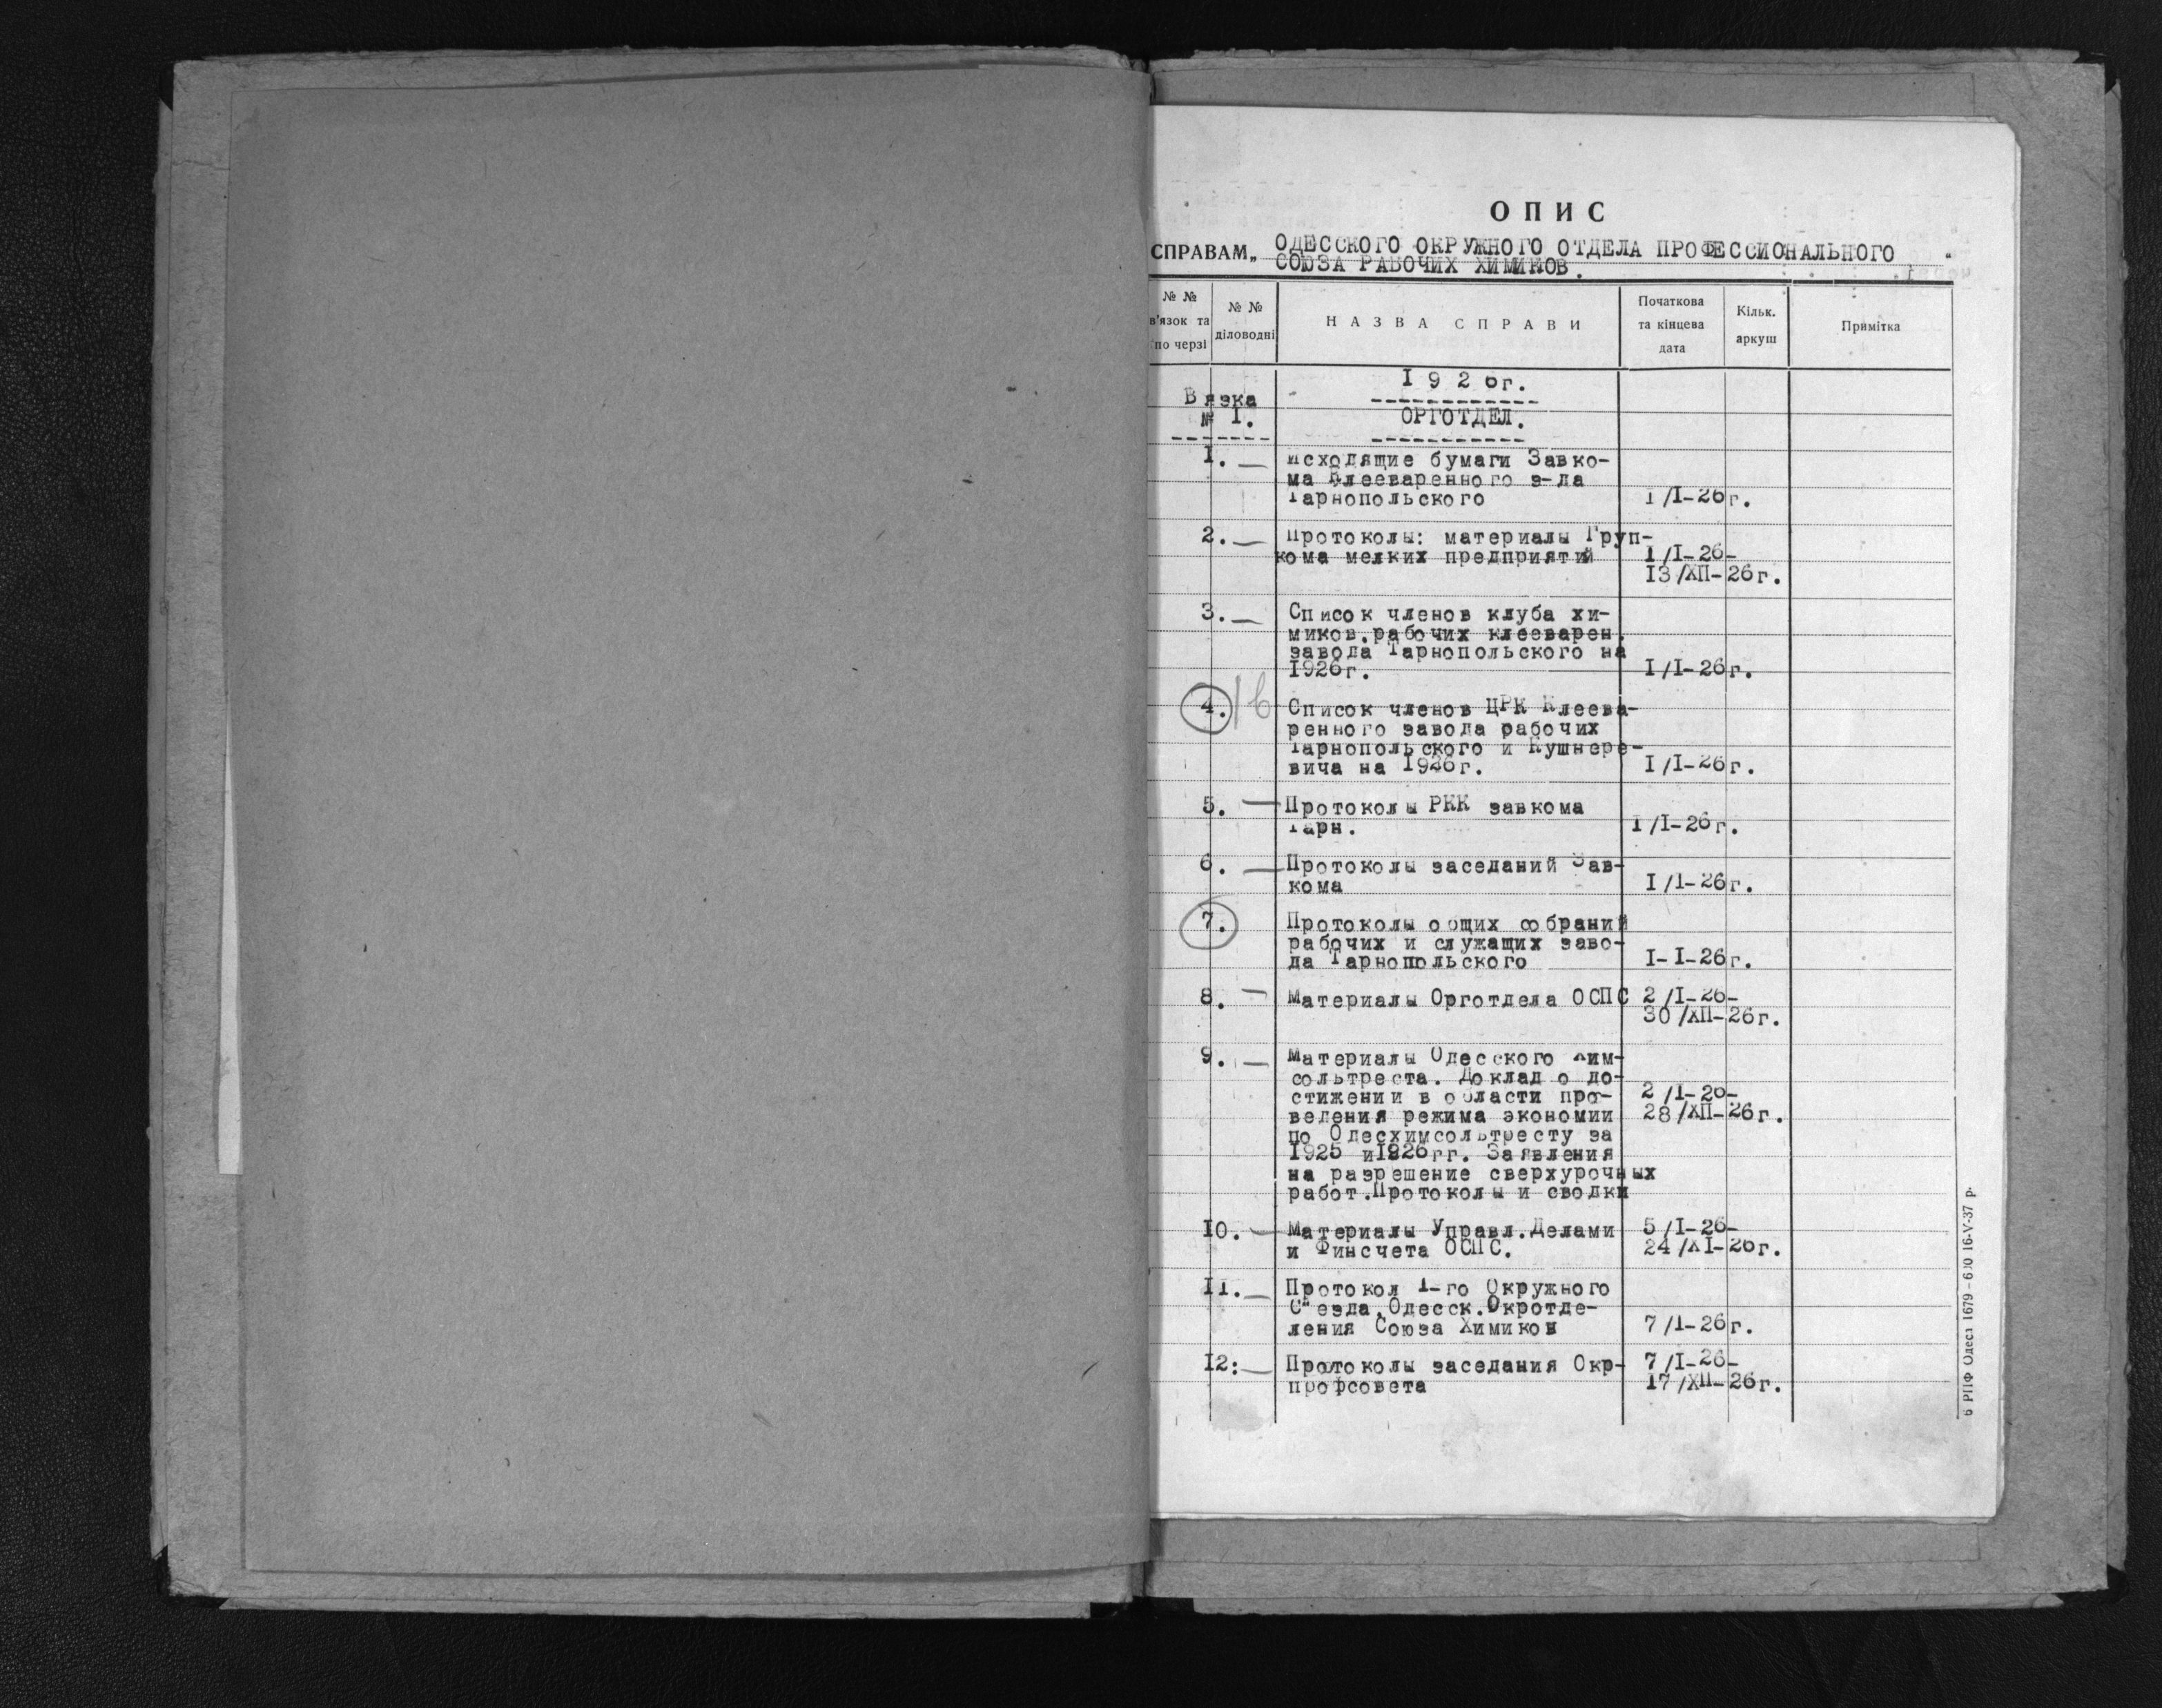 ОПИС
СПРАВАМ„ ОДЕССКОГО ОКРУЖНОГО ОТДЕЛА ПРОФЕССИОНАЛЬНОГО
СОЮЗА РАБОЧИХ ХИМИКОВ.
№ № в'язок та по черзі
№ № діловодні
НАЗВА СПРАВИ
Початкова та кінцева дата
Кільк. аркуш
Примітка
Вязка
№ I.
I926г.
ОРГОТДЕЛ.
I. — Исходящие бумаги Завко-
ма Клееваренного з-да
Тарнопольского I/I-26г.
2. — Протоколы: материалы Груп-
кома мелких предприятий I/I-26-
I3/XII-26г.
3. — Список членов клуба хи-
миков, рабочих клееварен.
завода Тарнопольского на
I926г. I/I-26г.
4. Список членов ЦРК Клеева-
ренного завода рабочих
Тарнопольского и Кушнере-
вича на I926г. I/I-26г.
5. — Протоколы РКК завкома
Тарн. I/I-26г.
6. — Протоколы заседаний Зав-
кома I/I-26г.
7. Протоколы общих собраний
рабочих и служащих заво-
да Тарнопольского I-I-26г.
8. — Материалы Орготдела ОСПС 2/I-26-
30/XII-26г.
9. — Материалы Одесского Хим-
сольтреста. Доклад о до-
стижении в области про- 2/I-26-
ведения режима экономии 28/XII-26г.
по Одесхимсольтресту за
I925 и I926гг. Заявления
на разрешение сверхурочных
работ. Протоколы и сводки
I0. — Материалы Управл. Делами 5/I-26-
и Финсчета ОСПС. 24/XI-26г.
II. — Протокол I-го Окружного
С"езда, Одесск. Окротде-
ления Союза Химиков 7/I-26г.
I2: — Протоколы заседания Окр- 7/I-26-
профсовета I7/XII-26г.
РПФ Одеса 1679 – 600 16-V-37 р.